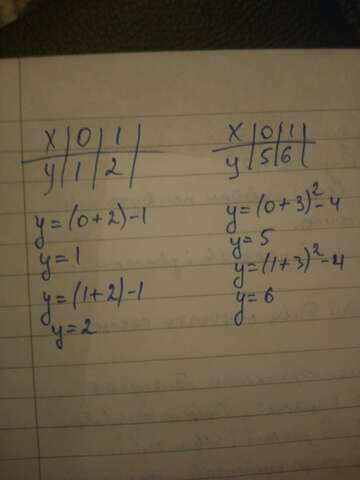 x | 0 | 1 |
y | 1 | 2 |
y=(0+2)-1
y=1
y=(1+2)-1
y=2
x | 0 | 1 |
y | 5 | 6 |
y=(0+3)²-4
y=5
y=(1+3)²-4
y=6